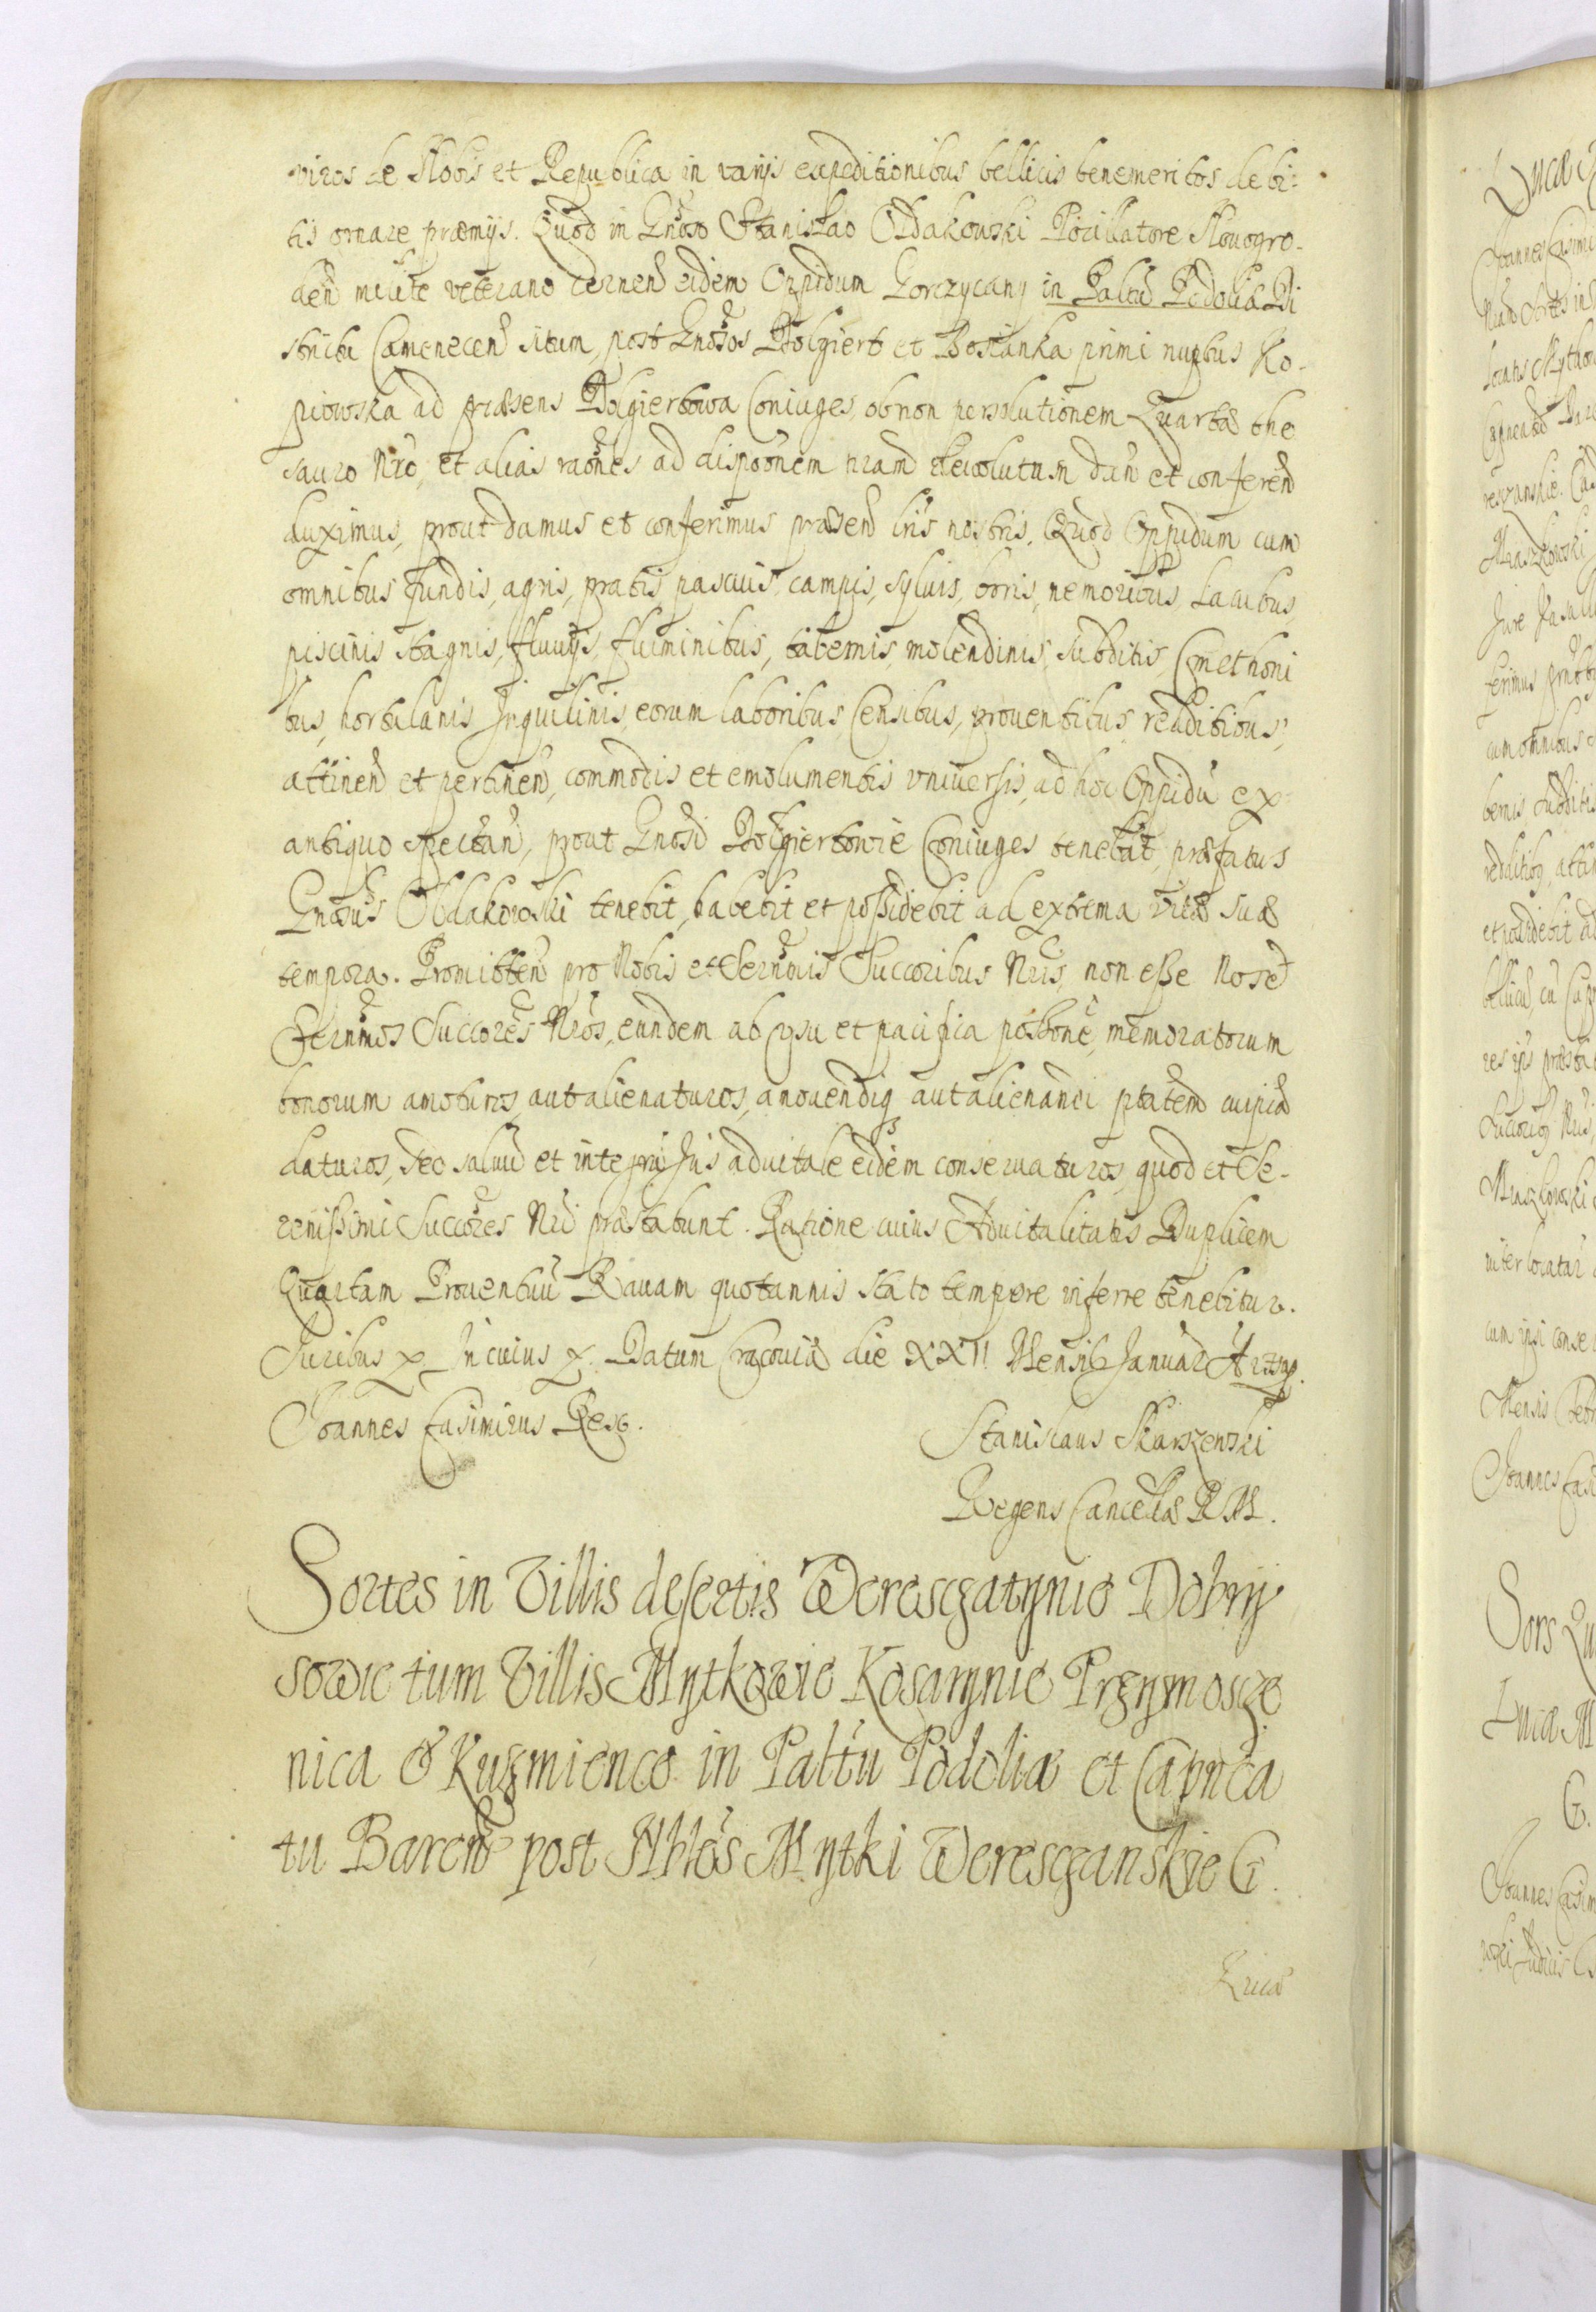 viros de Nobis et Republica in varijs expeditionibus bellicis benemeritos debi-
tis ornare præmijs. Quod in Gnoso Stanislao Obdakowski Pocillatore Nouogro-
den milite veterano cernen eidem Oppidum Gorczycany in Paltu Podoliæ Di
strictu Camenecen situm, post Gnosos Dolgiert et Bostanka primi nuptus Ko-
piowska ad præsens Dolgiertowa Coniuges, ob non persolutionem Quartæ the
sauro Nro, et alias raones ad dispoonem nram deuolutum dan et conferen
duximus, prout damus et conferimus præsen lris nostris. Quod Oppidum cum
omnibus fundis, agris, pratis, pascuis, campis, syluis, borris, nemoribus, Lacubus,
piscinis stagnis, fluuijs, fluminibus, tabernis, molendinis, subditis, Cmethoni
bus, hortulanis Inquilinis, eorum laboribus, Censibus, prouentibus redditibus,
attinen et pertinen, commodis et emolumentis vniuersis, ad hoc Oppidu ex
antiquo spectan, prout Gnosi Dolgiertowie Coniuges tenebat, præfatus
Gnosus Obdakowski tenebit, habebit et possidebit ad extrema vitæ suæ
tempora. Promitten pro Nobis et Sernmis Succoribus Nris, non esse Nos et
Sernmos Succores Nros, eundem ab vsu et pacifica possone, memoratorum
bonorum amoturos, aut alienaturos, amouendiq aut alienandi ptatem cuipia
daturos, sed saluu et integru Jus aduitale eidem conseruaturos, quod et Se-
renissimi Succores Nri præstabunt. Ratione cuius Aduitalitatis Duplicem
Quartam Prouentuu Rauam quotannis stato tempore inferre tenebitur.
Juribus x. In cuius x. Datum Cracouiæ die XXII Mensis Januar
Joannes Casimirus Rex.
Stanislaus Skarszewski
Regens Cancellæ R. M.
Sortes in Villis desertis Woresczatynie Dobry
sowie tum Villis Mytkowie Kosarynie Przymoscze
nica & Kuzmience in Paltu Podoliæ et Capnea
tu Baren post Nbles Mytki Woresczanskie G.